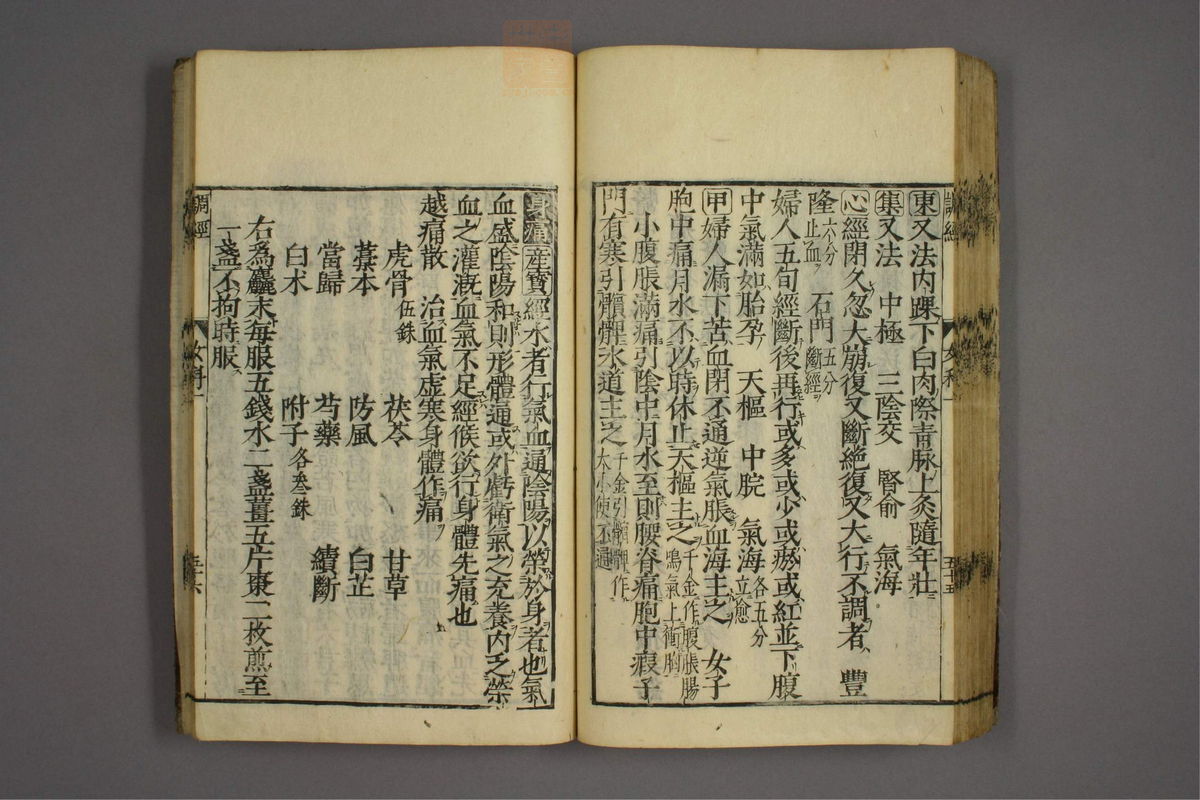 調經
女科一
五十五
東又法内踝下白肉際青脉上灸隨年壯
集又法 中極 三陰交 腎俞 氣海
心經閉久忽大崩復又斷絕復又大行不調者 豐
隆六分止血 石門五分斷經
婦人五旬經斷後再行或多或少或瘀或紅並下腹
中氣滿如胎孕 天樞 中脘 氣海各五分立愈
甲婦人漏下苦血閉不通逆氣脹血海主之 女子
胞中痛月水不以時休止天樞主之千金作腹脹腸鳴氣上衝胸
小腹脹滿痛引陰中月水至則腰脊痛胞中瘕子
門有寒引髕髀水道主之千金引髕髀作大小便不通
身痛產寶經水者行氣血通陰陽以榮於身者也氣
血盛陰陽和則形體通或外虧衛氣之充養内乏榮
血之灌漑血氣不足經候欲行身體先痛也
越痛散 治血氣虚寒身體作痛
虎骨伍銖 茯苓 甘草
藁本 防風 白芷
當歸 芍藥 續斷
白朮 附子各叁銖
右為麤末每服五錢水二盞薑五片棗二枚煎至
一盞不拘時服
調經
女科一
五十六